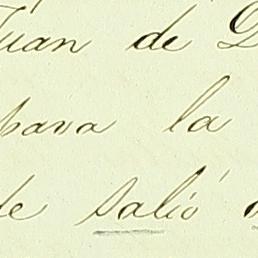 Juan de D
pava la
de salió